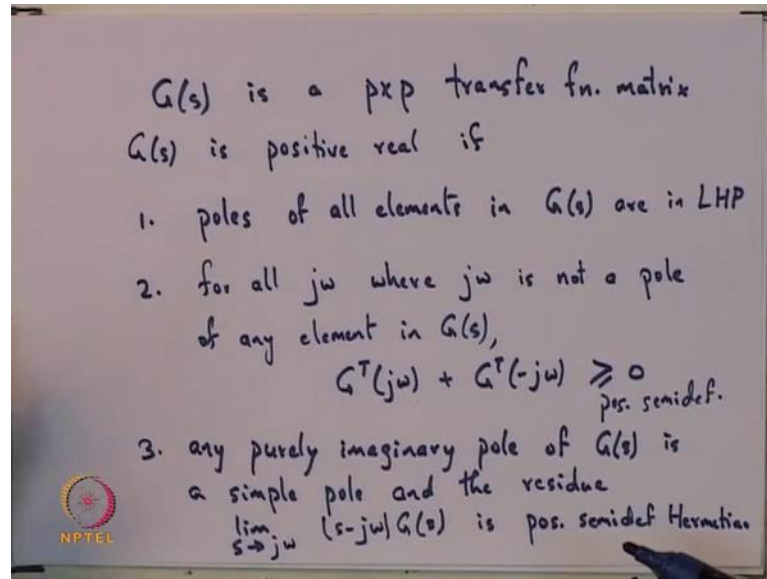 G(s) is a pxp transfer fn. matrix
G(s) is positive real if
1. poles of all elements in G(s) are in LHP
2. for all jw where jw is not a pole
of any element in G(s),
G^T(jw) + G^T(-jw) ⩾ 0
pos. semidef.
3. any purely imaginary pole of G(s) is
a simple pole and the residue
lim s→jw (s-jw) G(s) is pos. semidef Hermetian
NPTEL